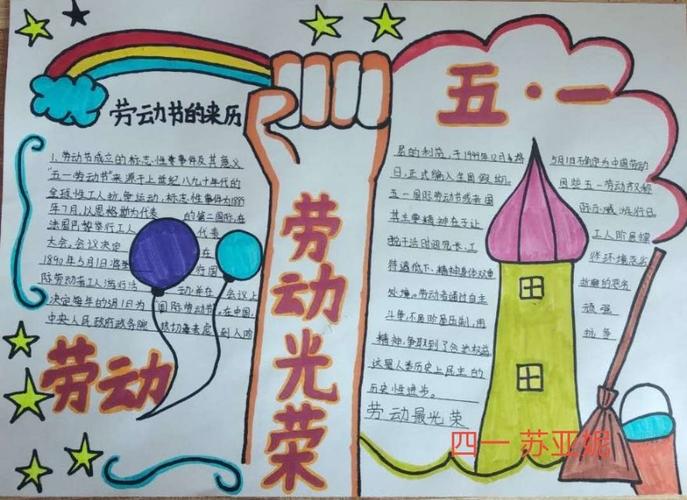 五·一
劳动节的来历
1、劳动节成立的标志性事件及其意义
"五一劳动节"来源于上世纪八九十年代的
全球性工人抗争运动，标志性事件为1889
年7月，以恩格斯为代表的第二国际，在
法国巴黎举行工人代表
大会，会议决定在
1890年5月1日
行国
际劳动者工人游行
动并在会议上
决定每年的5月1日为国际劳动节。在中国，
中央人民政府政务院
到人的
劳动
劳动光荣
于1949年12月
日，正式编入全国假期。
五一国际劳动节
其主要精神在于让
时间冗长、工
待遇低下、精神身体双重
处境。劳动者通过自主
斗争不畏阶层压制，用
精神，争取到了合法权益
这是人类历史上民主的
历史性进步。
劳动最光荣
5月1日
定为中国劳动
五一劳动节又称
际示威游行日。
工人阶层
环境恶劣
的恶劣
顽强
抗争
四一 苏亚妮